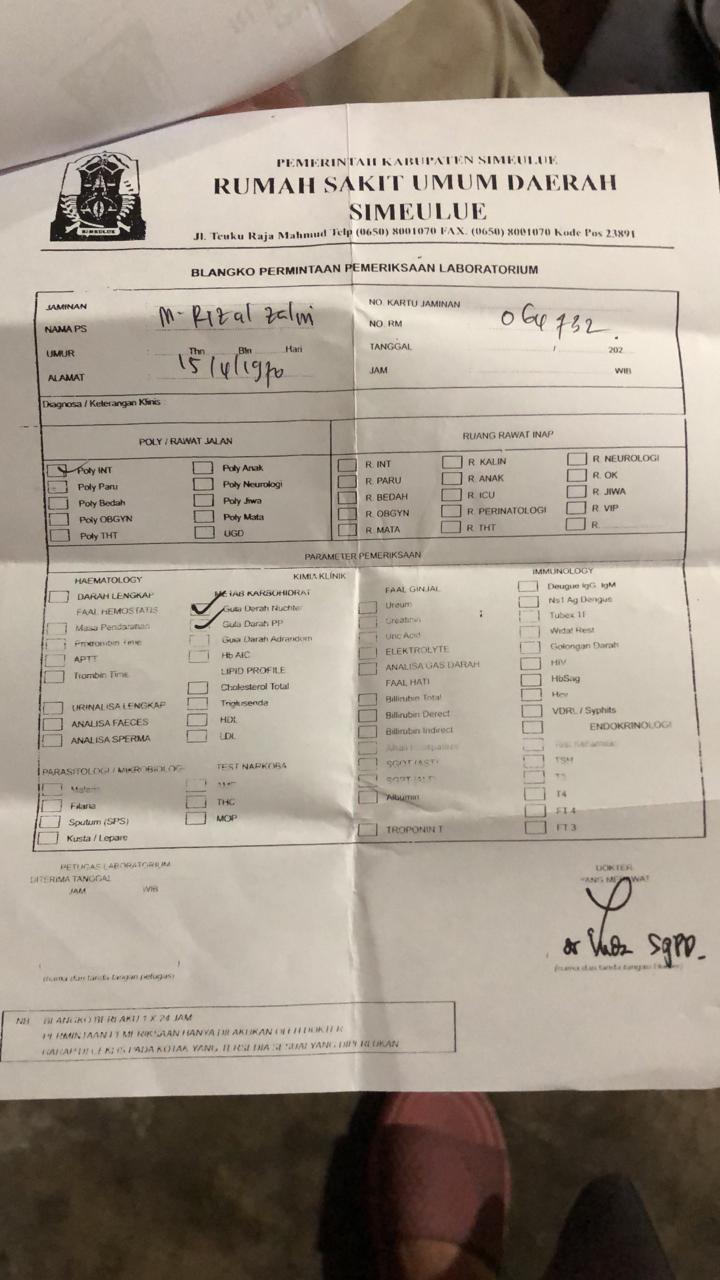 PEMERINTAH KABUPATEN SIMEULUE
RUMAH SAKIT UMUM DAERAH
SIMEULUE
Jl. Teuku Raja Mahmud Telp (0650) 8001070 FAX. (0650) 8001070 Kode Pos 23891
SIMEULUE
BLANGKO PERMINTAAN PEMERIKSAAN LABORATORIUM
JAMINAN
NAMA PS M. Rizal
UMUR Thn Bln Hari
15/4/1970
ALAMAT
NO. KARTU JAMINAN
NO. RM 064732
TANGGAL / 202
JAM WIB
Diagnosa / Keterangan Klinis :
POLY / RAWAT JALAN
Poly INT
Poly Paru
Poly Bedah
Poly OBGYN
Poly THT
Poly Anak
Poly Neurologi
Poly Jiwa
Poly Mata
UGD
RUANG RAWAT INAP
R. INT
R. PARU
R. BEDAH
R. OBGYN
R. MATA
R. KALIN
R. ANAK
R. ICU
R. PERINATOLOGI
R. THT
R. NEUROLOGI
R. OK
R. JIWA
R. VIP
R.
PARAMETER PEMERIKSAAN
HAEMATOLOGY
DARAH LENGKAP
FAAL HEMOSTATIS
Masa Pendarahan
Protrombin Time
APTT
Trombin Time
URINALISA LENGKAP
ANALISA FAECES
ANALISA SPERMA
PARASITOLOGI / MIKROBIOLOGI
Malaria
Filaria
Sputum (SPS)
Kusta / Lepare
KIMIA KLINIK
METAB KARBOHIDRAT
Gula Darah Nuchter
Gula Darah PP
Gula Darah Adrandom
Hb AIC
LIPID PROFILE
Cholesterol Total
Trigliserida
HDL
LDL
TEST NARKOBA
THC
MOP
FAAL GINJAL
Ureum
Creatinin
Uric Acid
ELEKTROLYTE
ANALISA GAS DARAH
FAAL HATI
Billirubin Total
Billirubin Derect
Billirubin Indirect
SGOT (AST)
SGPT (ALT)
Albumin
TROPONIN T
IMMUNOLOGY
Deugue IgG. IgM
Ns1 Ag Dengus
Tubex TF
Widal Rest
Golongan Darah
HIV
HbSag
Hcv
VDRL / Syphits
ENDOKRINOLOGI
TSM
T3
T4
FT 4
FT 3
PETUGAS LABORATORIUM
DITERIMA TANGGAL
JAM WIB
(nama dan tanda tangan petugas)
DOKTER
YANG MERAWAT
dr SpPD
(nama dan tanda tangan
NB BLANGKO BERLAKU 1 X 24 JAM
PERMINTAAN PEMERIKSAAN HANYA DILAKUKAN OLEH DOKTER
HARAP DI CEKLIS PADA KOTAK YANG TERSEDIA SESUAI YANG DIPERLUKAN